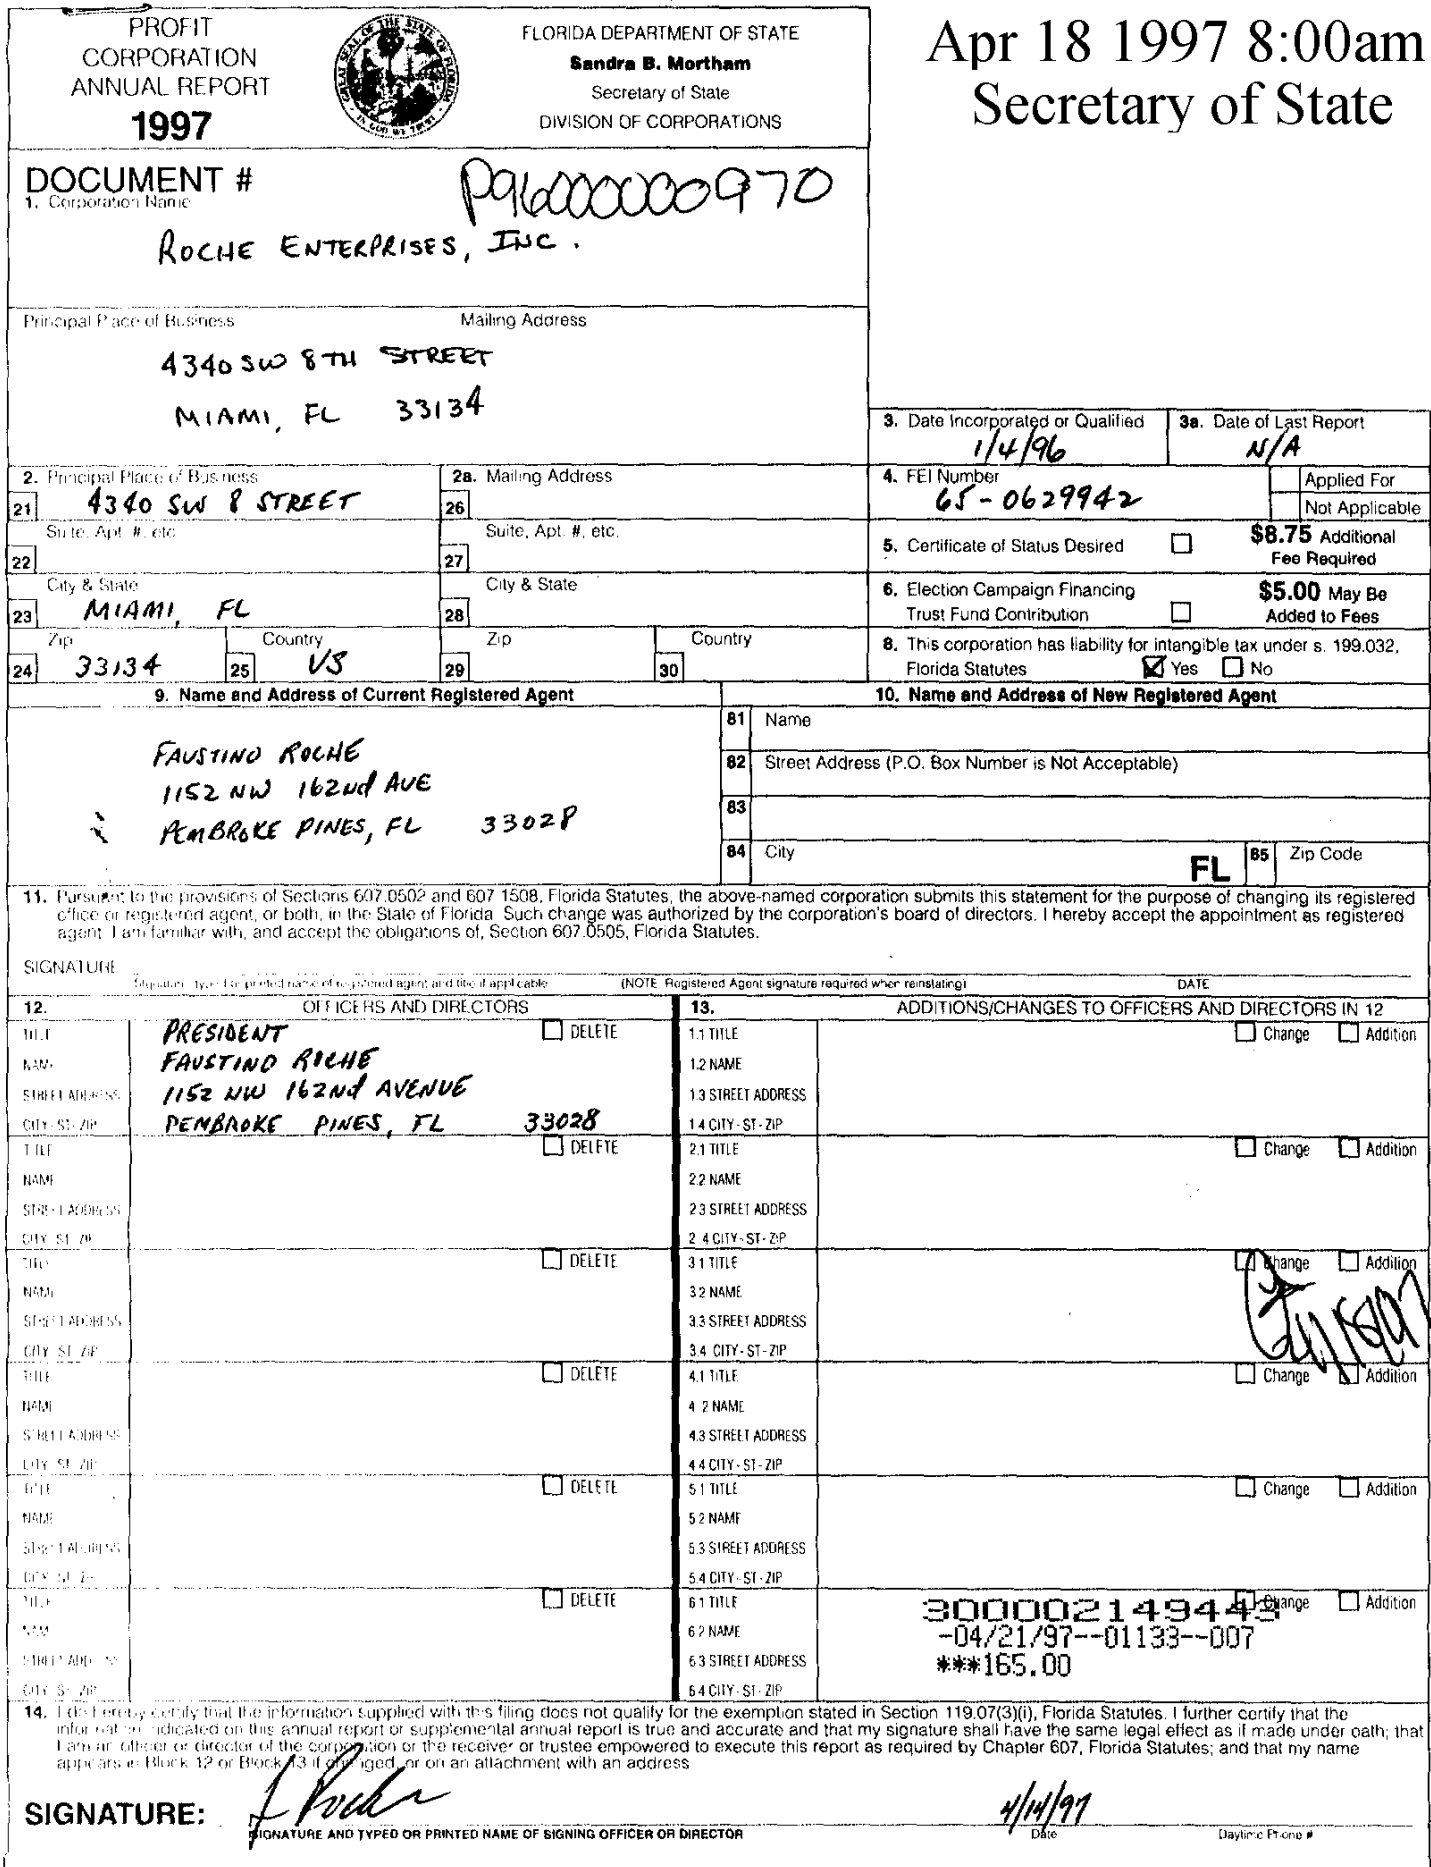 PROFIT
CORPORATION
ANNUAL REPORT
1997
GREAT SEAL OF THE STATE OF FLORIDA
IN GOD WE TRUST
FLORIDA DEPARTMENT OF STATE
Sandra B. Mortham
Secretary of State
DIVISION OF CORPORATIONS
Apr 18 1997 8:00am
Secretary of State
DOCUMENT # P96000000970
1. Corporation Name
ROCHE ENTERPRISES, INC.
Principal Place of Business Mailing Address
4340 SW 8TH STREET
MIAMI, FL 33134
3. Date Incorporated or Qualified
1/4/96
3a. Date of Last Report
N/A
2. Principal Place of Business
21 4340 SW 8 STREET
2a. Mailing Address
26
4. FEI Number
65-0629942
Applied For
Not Applicable
Suite, Apt. #, etc.
22
Suite, Apt. #, etc.
27
5. Certificate of Status Desired
$8.75 Additional
Fee Required
City & State
23 MIAMI, FL
City & State
28
6. Election Campaign Financing
Trust Fund Contribution
$5.00 May Be
Added to Fees
Zip
24 33134
Country
25 US
Zip
29
Country
30
8. This corporation has liability for intangible tax under s. 199.032,
Florida Statutes Yes No
9. Name and Address of Current Registered Agent
FAUSTINO ROCHE
1152 NW 162nd AVE
PEMBROKE PINES, FL 33028
10. Name and Address of New Registered Agent
81 Name
82 Street Address (P.O. Box Number is Not Acceptable)
83
84 City
FL 85 Zip Code
11. Pursuant to the provisions of Sections 607.0502 and 607.1508, Florida Statutes, the above-named corporation submits this statement for the purpose of changing its registered
office or registered agent, or both, in the State of Florida. Such change was authorized by the corporation's board of directors. I hereby accept the appointment as registered
agent. I am familiar with, and accept the obligations of, Section 607.0505, Florida Statutes.
SIGNATURE
Signature, typed or printed name of registered agent and title if applicable (NOTE: Registered Agent signature required when reinstating) DATE
12. OFFICERS AND DIRECTORS
13. ADDITIONS/CHANGES TO OFFICERS AND DIRECTORS IN 12
TITLE PRESIDENT DELETE
NAME FAUSTINO ROCHE
STREET ADDRESS 1152 NW 162nd AVENUE
CITY-ST-ZIP PEMBROKE PINES, FL 33028
1.1 TITLE Change Addition
1.2 NAME
1.3 STREET ADDRESS
1.4 CITY-ST-ZIP
TITLE DELETE
NAME
STREET ADDRESS
CITY-ST-ZIP
2.1 TITLE Change Addition
2.2 NAME
2.3 STREET ADDRESS
2.4 CITY-ST-ZIP
TITLE DELETE
NAME
STREET ADDRESS
CITY-ST-ZIP
3.1 TITLE Change Addition
3.2 NAME
3.3 STREET ADDRESS
3.4 CITY-ST-ZIP
TITLE DELETE
NAME
STREET ADDRESS
CITY-ST-ZIP
4.1 TITLE Change Addition
4.2 NAME
4.3 STREET ADDRESS
4.4 CITY-ST-ZIP
TITLE DELETE
NAME
STREET ADDRESS
CITY-ST-ZIP
5.1 TITLE Change Addition
5.2 NAME
5.3 STREET ADDRESS
5.4 CITY-ST-ZIP
TITLE DELETE
NAME
STREET ADDRESS
CITY-ST-ZIP
6.1 TITLE Change Addition
6.2 NAME
6.3 STREET ADDRESS
6.4 CITY-ST-ZIP
300002149443
-04/21/97--01133--007
***165.00
14. I do hereby certify that the information supplied with this filing does not qualify for the exemption stated in Section 119.07(3)(i), Florida Statutes. I further certify that the
information indicated on this annual report or supplemental annual report is true and accurate and that my signature shall have the same legal effect as if made under oath; that
I am an officer or director of the corporation or the receiver or trustee empowered to execute this report as required by Chapter 607, Florida Statutes; and that my name
appears in Block 12 or Block 13 if changed, or on an attachment with an address
SIGNATURE: 4/14/97
SIGNATURE AND TYPED OR PRINTED NAME OF SIGNING OFFICER OR DIRECTOR Date Daytime Phone #